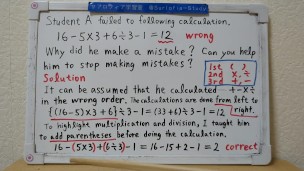 Student A failed to following calculation.
16-5×3+6÷3-1=12 wrong
Why did he make a mistake? Can you help
him to stop making mistakes?
1st ( )
2nd ×, ÷
3rd +, -
Solution
It can be assumed that he calculated +-×÷
in the wrong order. The calculations are done from left to
{(16-5)×3+6}÷3-1=(33+6)÷3-1=12 right.
To highlight multiplication and division, I taught him
to add parentheses before doing the calculation.
16-(5×3)+(6÷3)-1=16-15+2-1=2 correct